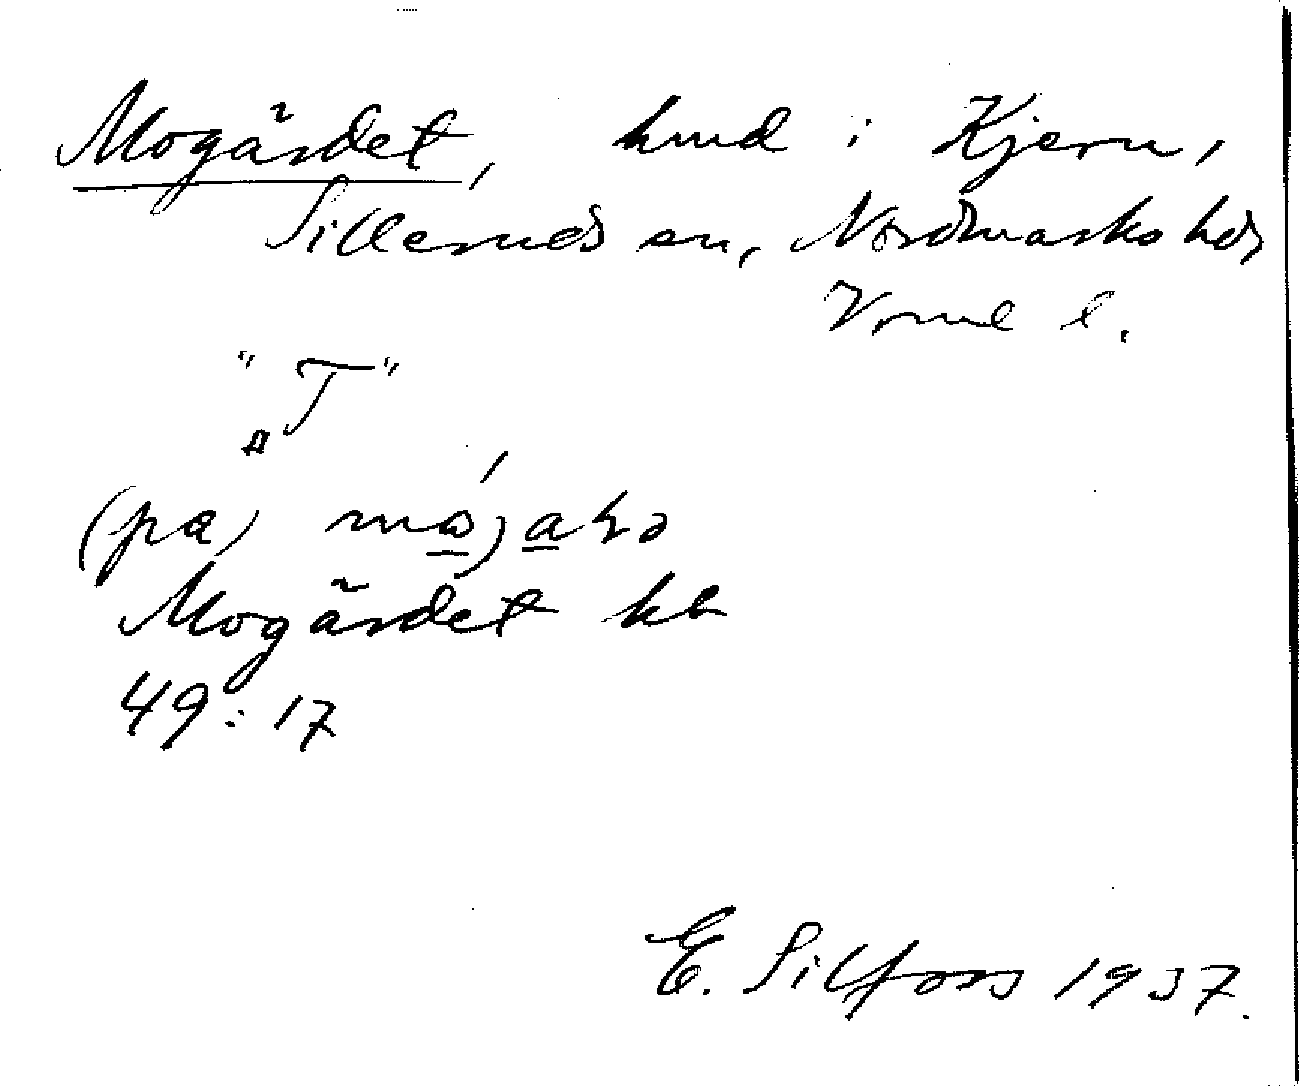 Mogärdet, hmd i Kjern,
Silleruds sn, Nordmarks hds
Vrml l.
"T"
(pa)
Mogärdet kb
49:17
E. Silfors 1937.